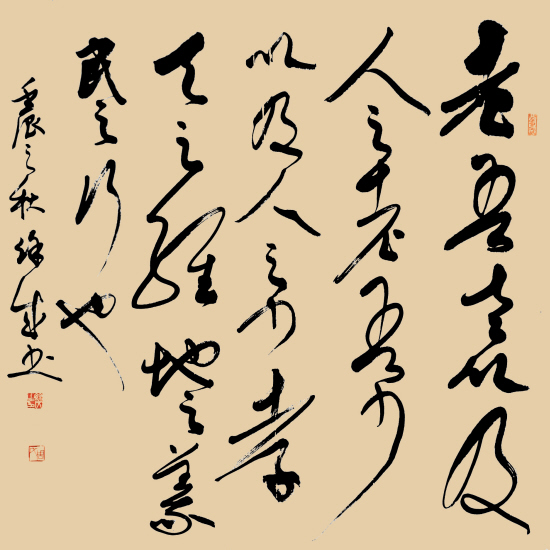 老吾老以及
人之老吾幼
以及人之幼孝
天之经地之義
民之行也
壬辰之秋徐成书